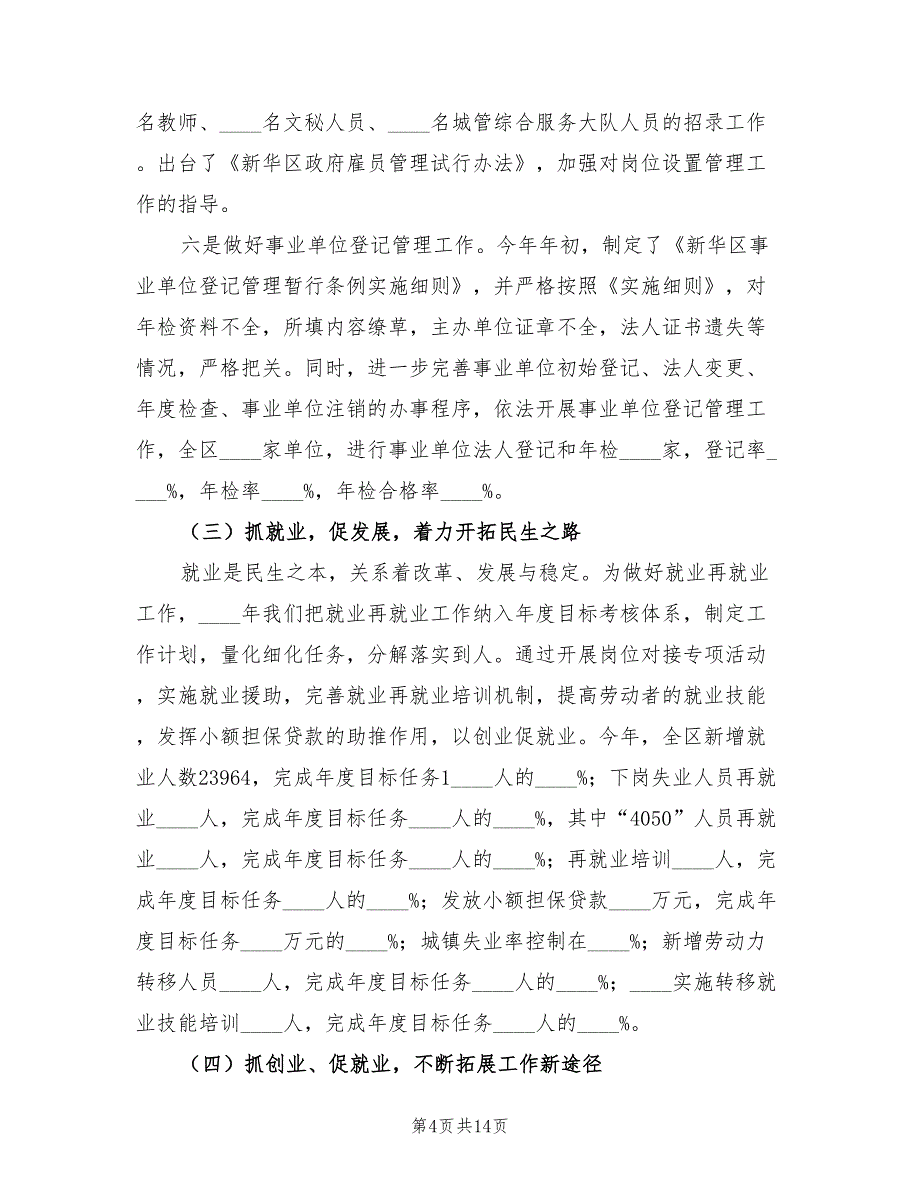 名教师、____名文秘人员、____名城管综合服务大队人员的招录工作
。出台了《新华区政府雇员管理试行办法》，加强对岗位设置管理工
作的指导。
六是做好事业单位登记管理工作。今年年初，制定了《新华区事
业单位登记管理暂行条例实施细则》，并严格按照《实施细则》，对
年检资料不全，所填内容缭草，主办单位证章不全，法人证书遗失等
情况，严格把关。同时，进一步完善事业单位初始登记、法人变更、
年度检查、事业单位注销的办事程序，依法开展事业单位登记管理工
作，全区____家单位，进行事业单位法人登记和年检____家，登记率_
___%，年检率____%，年检合格率____%。
（三）抓就业，促发展，着力开拓民生之路
就业是民生之本，关系着改革、发展与稳定。为做好就业再就业
工作，____年我们把就业再就业工作纳入年度目标考核体系，制定工
作计划，量化细化任务，分解落实到人。通过开展岗位对接专项活动
，实施就业援助，完善就业再就业培训机制，提高劳动者的就业技能
，发挥小额担保贷款的助推作用，以创业促就业。今年，全区新增就
业人数23964，完成年度目标任务1____人的____%；下岗失业人员再就
业____人，完成年度目标任务____人的____%，其中“4050”人员再就
业____人，完成年度目标任务____人的____%；再就业培训____人，完
成年度目标任务____人的____%；发放小额担保贷款____万元，完成年
度目标任务____万元的____%；城镇失业率控制在____%；新增劳动力
转移人员____人，完成年度目标任务____人的____%；____实施转移就
业技能培训____人，完成年度目标任务____人的____%。
（四）抓创业、促就业，不断拓展工作新途径
第4页共14页